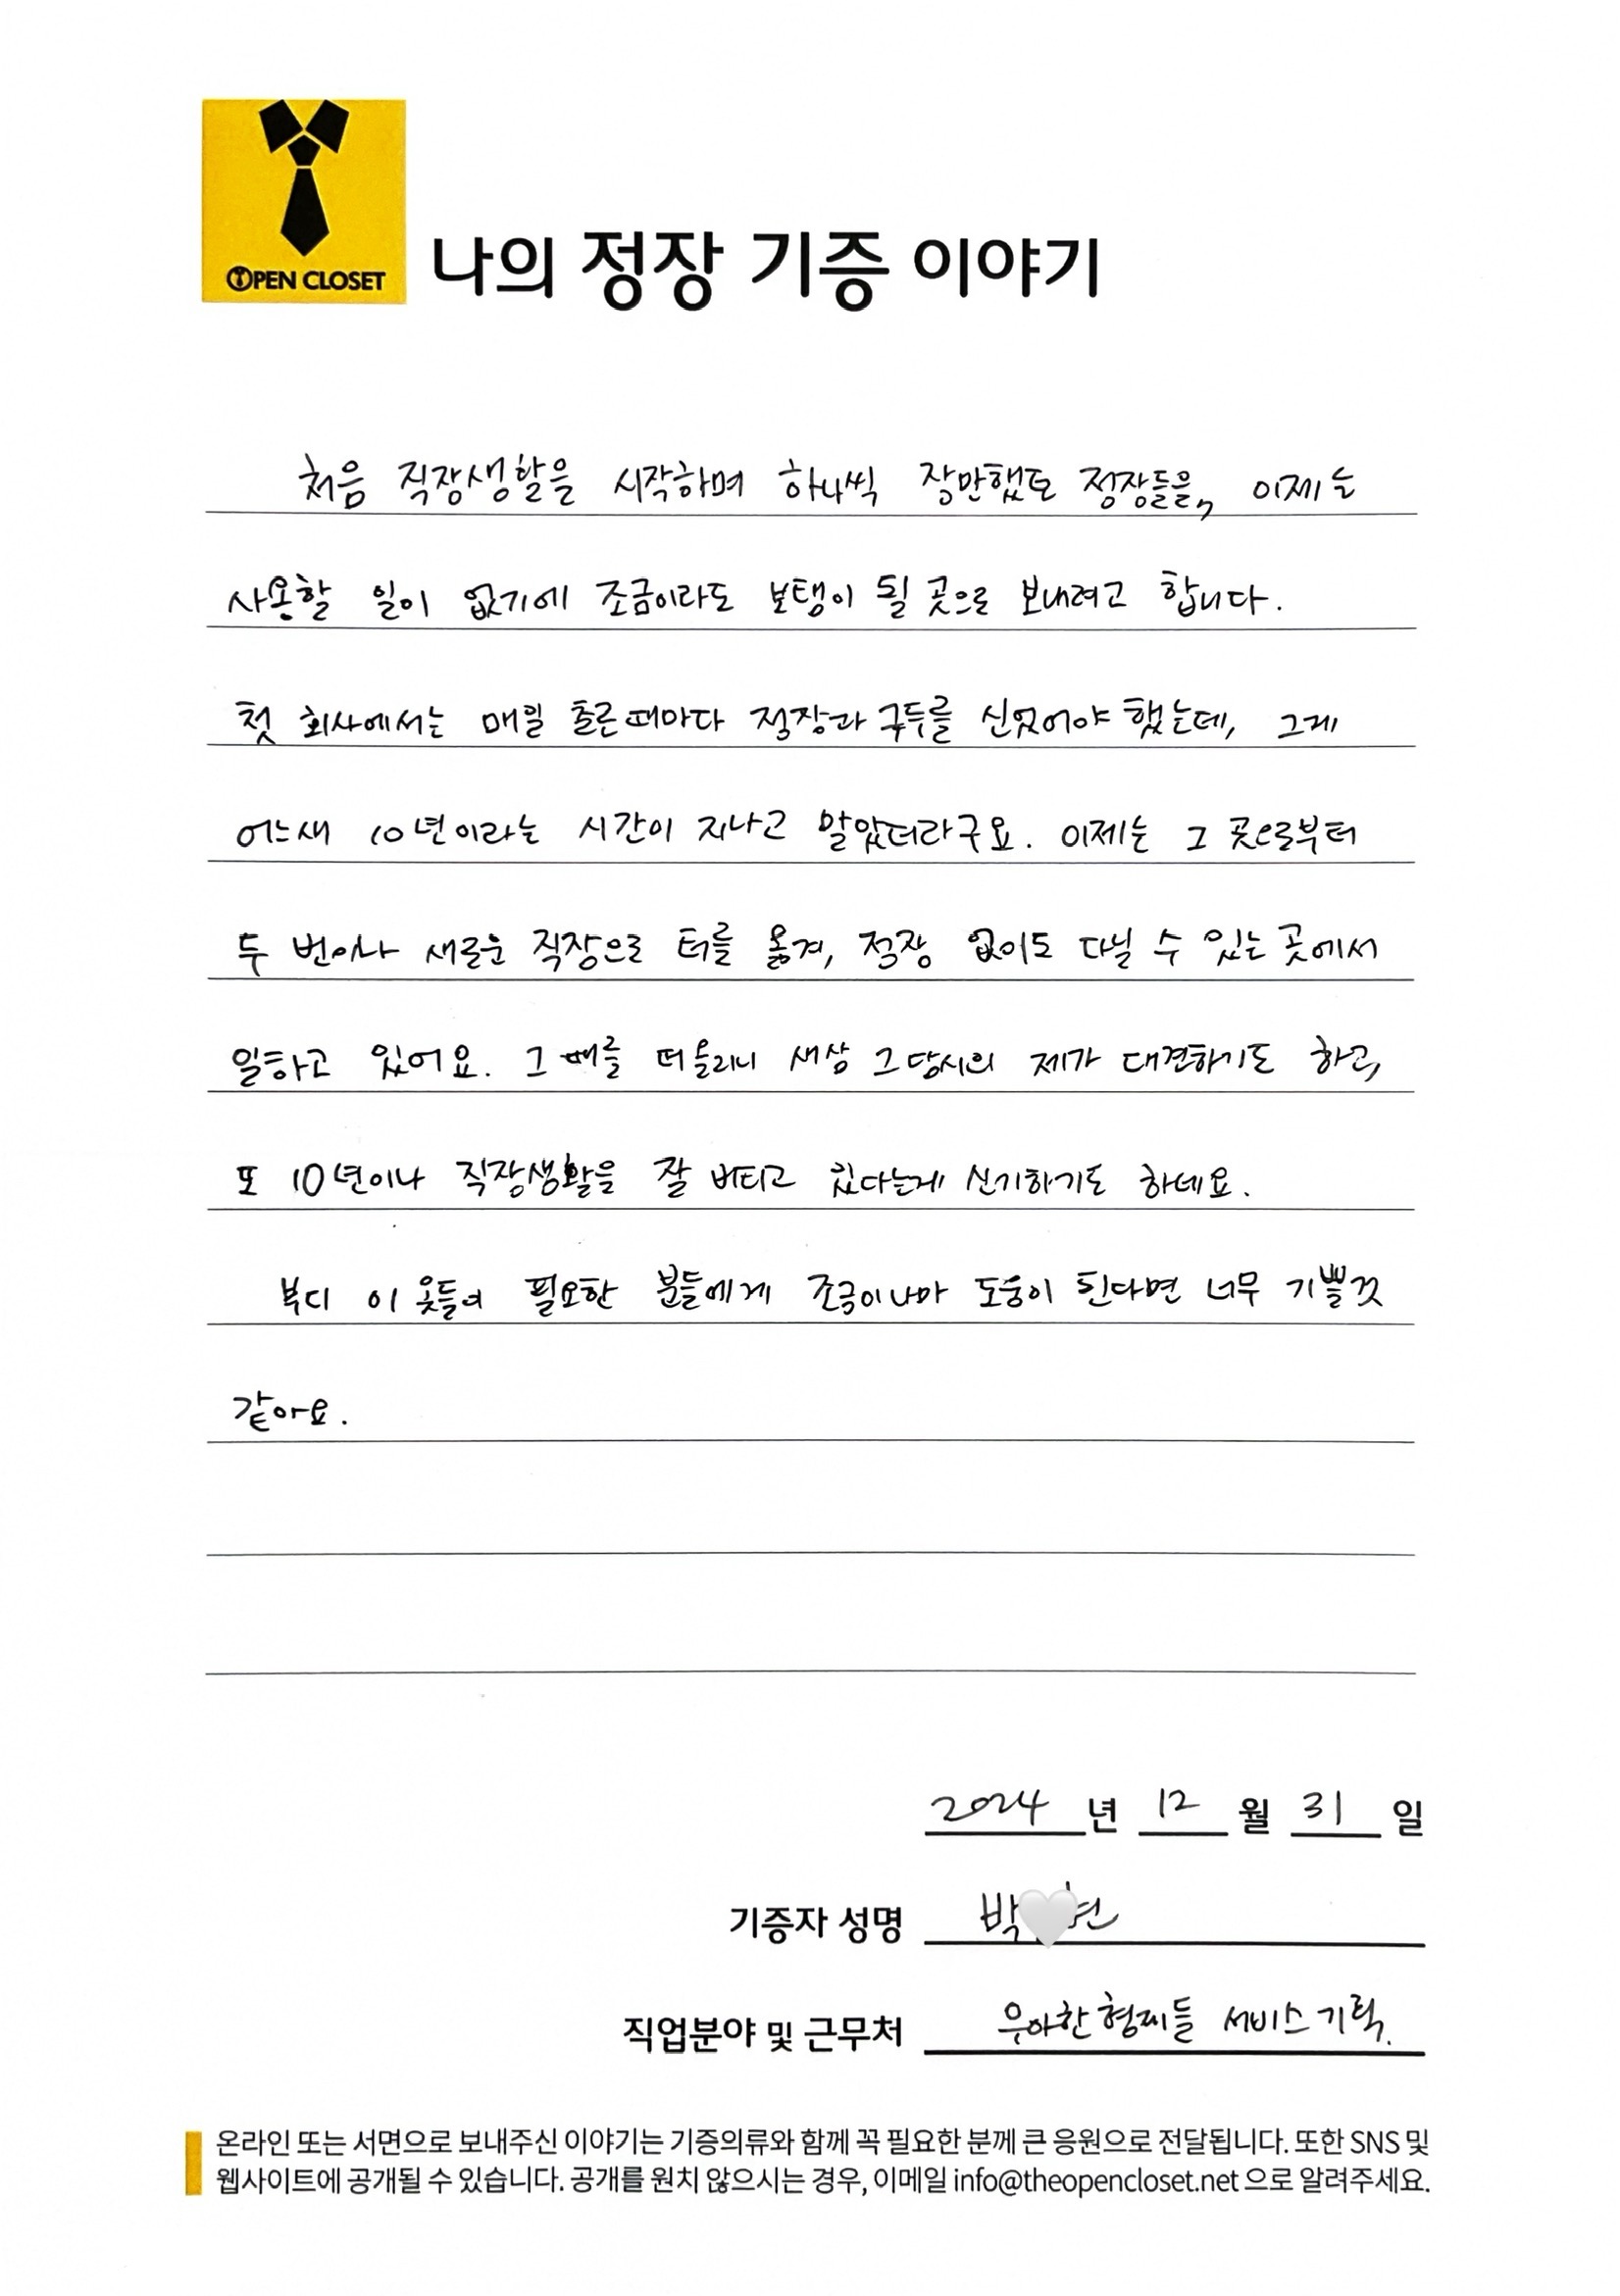 OPEN CLOSET
나의 정장 기증 이야기
처음 직장생활을 시작하며 하나씩 장만했던 정장들을, 이제는
사용할 일이 없기에 조금이라도 보탬이 될 곳으로 보내려고 합니다.
첫 회사에서는 매일 출근때마다 정장과 구두를 신었어야 했는데, 그게
어느새 10년이라는 시간이 지나고 말았더라구요. 이제는 그 곳으로부터
두 번이나 새로운 직장으로 터를 옮겨, 정장 없이도 다닐 수 있는 곳에서
일하고 있어요. 그 때를 떠올리니 새삼 그 당시의 제가 대견하기도 하고,
또 10년이나 직장생활을 잘 버티고 있다는게 신기하기도 하네요.
부디 이 옷들이 필요한 분들에게 조금이나마 도움이 된다면 너무 기쁠것
같아요.
2024 년 12 월 31 일
기증자 성명 박 현
직업분야 및 근무처 우아한형제들 서비스기획.
온라인 또는 서면으로 보내주신 이야기는 기증의류와 함께 꼭 필요한 분께 큰 응원으로 전달됩니다. 또한 SNS 및
웹사이트에 공개될 수 있습니다. 공개를 원치 않으시는 경우, 이메일 info@theopencloset.net 으로 알려주세요.